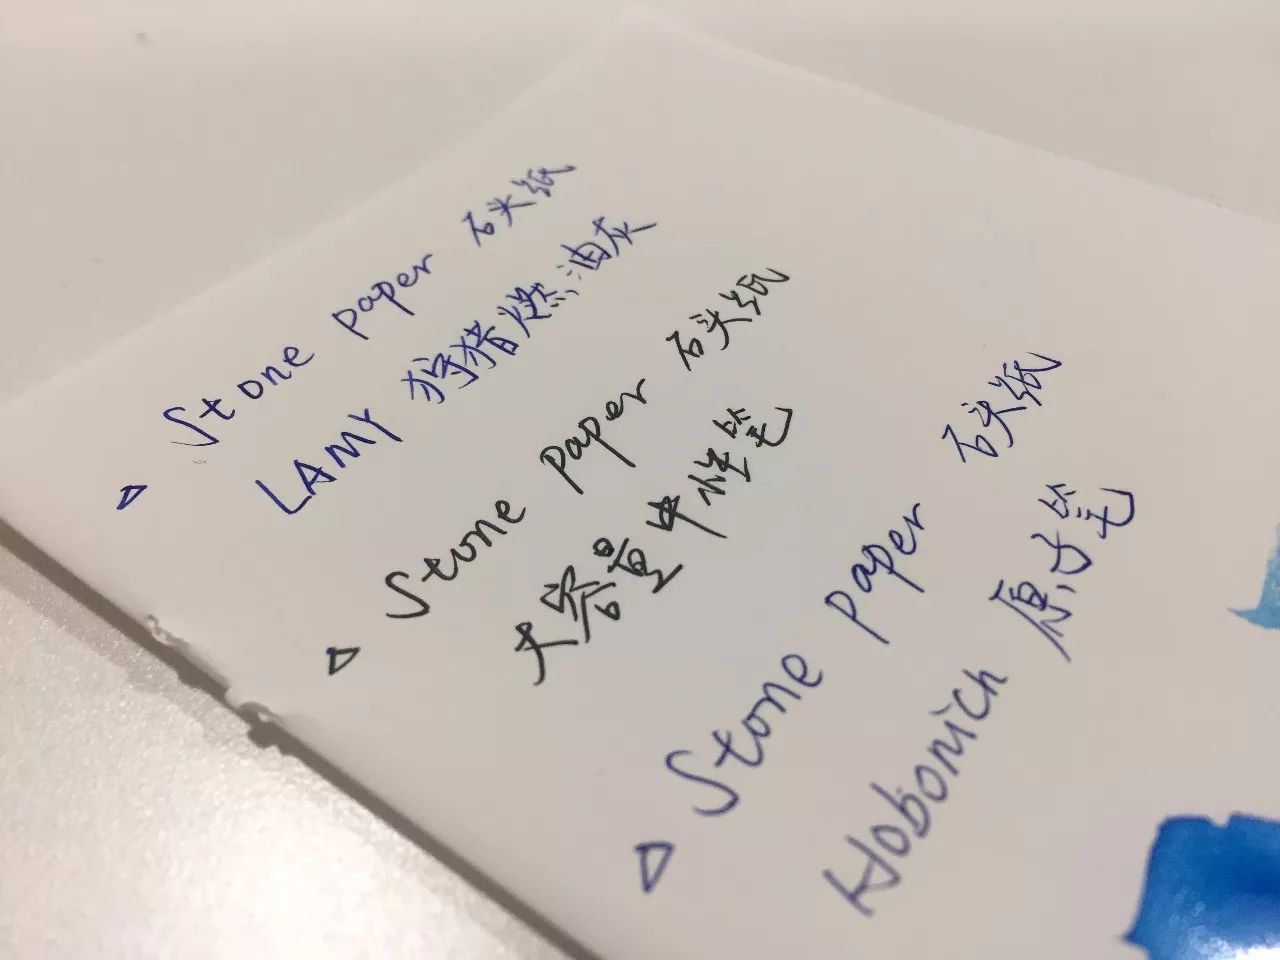 Stone paper 石头纸
LAMY 狩猎燃油灰
Stone paper 石头纸
大容量中性笔
Stone paper 石头纸
Hobonich 原子笔